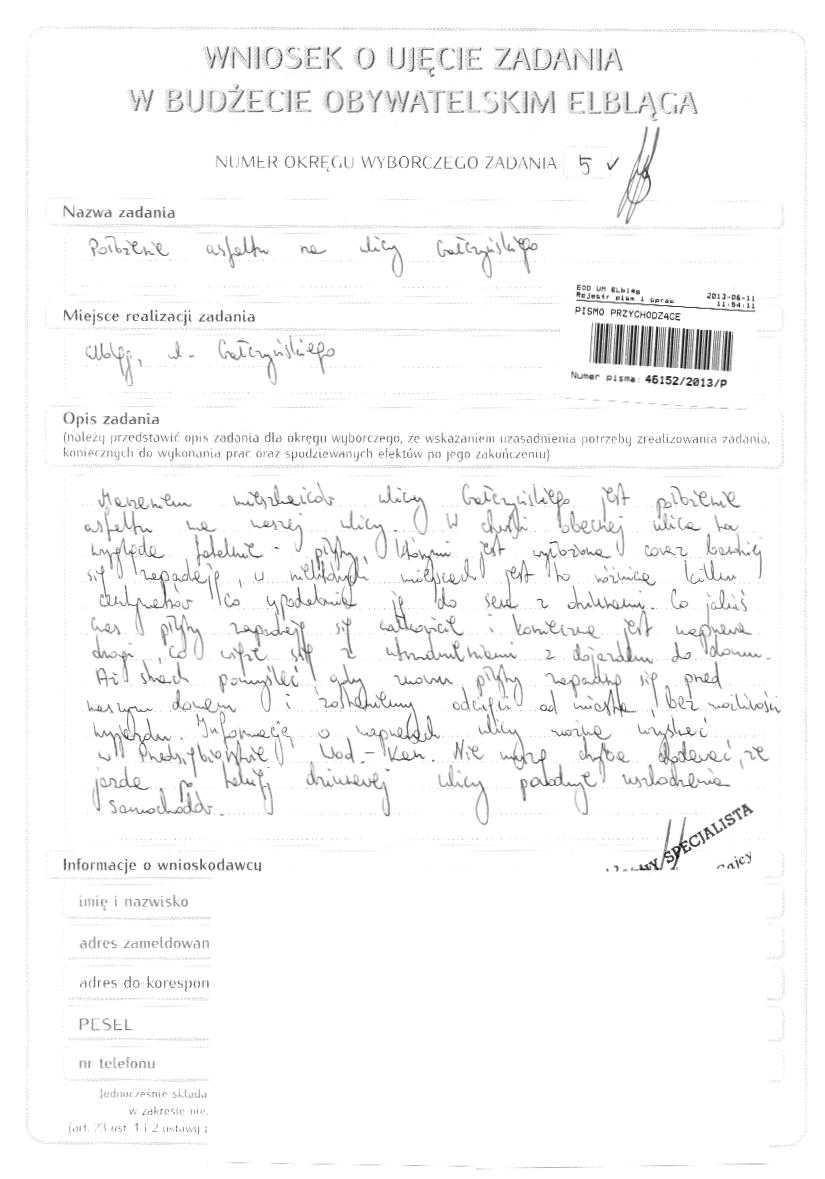 WNIOSEK O UJĘCIE ZADANIA
W BUDŻECIE OBYWATELSKIM ELBLĄGA
NUMER OKRĘGU WYBORCZEGO ZADANIA 5 ✓
Nazwa zadania
Położenie asfaltu na ulicy Gałczyńskiego
EOD UM Elbląg 2013-06-11
Rejestr pism i spraw 11:54:11
PISMO PRZYCHODZĄCE
Numer pisma: 46152/2013/P
Miejsce realizacji zadania
Elbląg, ul. Gałczyńskiego
Opis zadania
(należy przedstawić opis zadania dla okręgu wyborczego, ze wskazaniem uzasadnienia potrzeby zrealizowania zadania,
koniecznych do wykonania prac oraz spodziewanych efektów po jego zakończeniu)
Marzeniem mieszkańców ulicy Gałczyńskiego jest położenie
asfaltu na naszej ulicy. W chwili obecnej ulica ta
wygląda fatalnie - płyty, którymi jest wyłożona coraz bardziej
się zapadają, w niektórych miejscach jest to różnica kilku
centymetrów co upodabnia ją do sera z dziurami. Co jakiś
czas płyty zapadają się całkowicie i konieczna jest naprawa
drogi, co wiąże się z utrudnieniami z dojazdem do domu.
Aż strach pomyśleć gdy znowu płyty zapadną się pred
naszym domem i zostaniemy odcięci od miasta, bez możliwości
wyjazdu. Informację o naprawach ulicy można uzyskać
w Przedsiębiorstwie Wod.-Kan. Nie muszę chyba dodawać, że
jazda po takiej dziurawej ulicy powoduje uszkodzenia
samochodów.
SPECJALISTA
Informacje o wnioskodawcy
imię i nazwisko
adres zameldowan
adres do korespon
PESEL
nr telefonu
Jednocześnie składa
w zakresie nie
(art. 23 ust. 1 i 2 ustawy